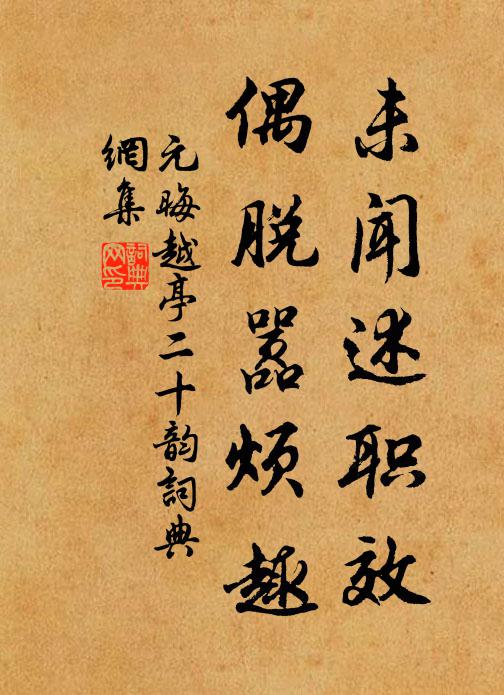 未闻述职效
偶脱嚣烦趣
元晦越亭二十韵詞典
網集
詞典
网印